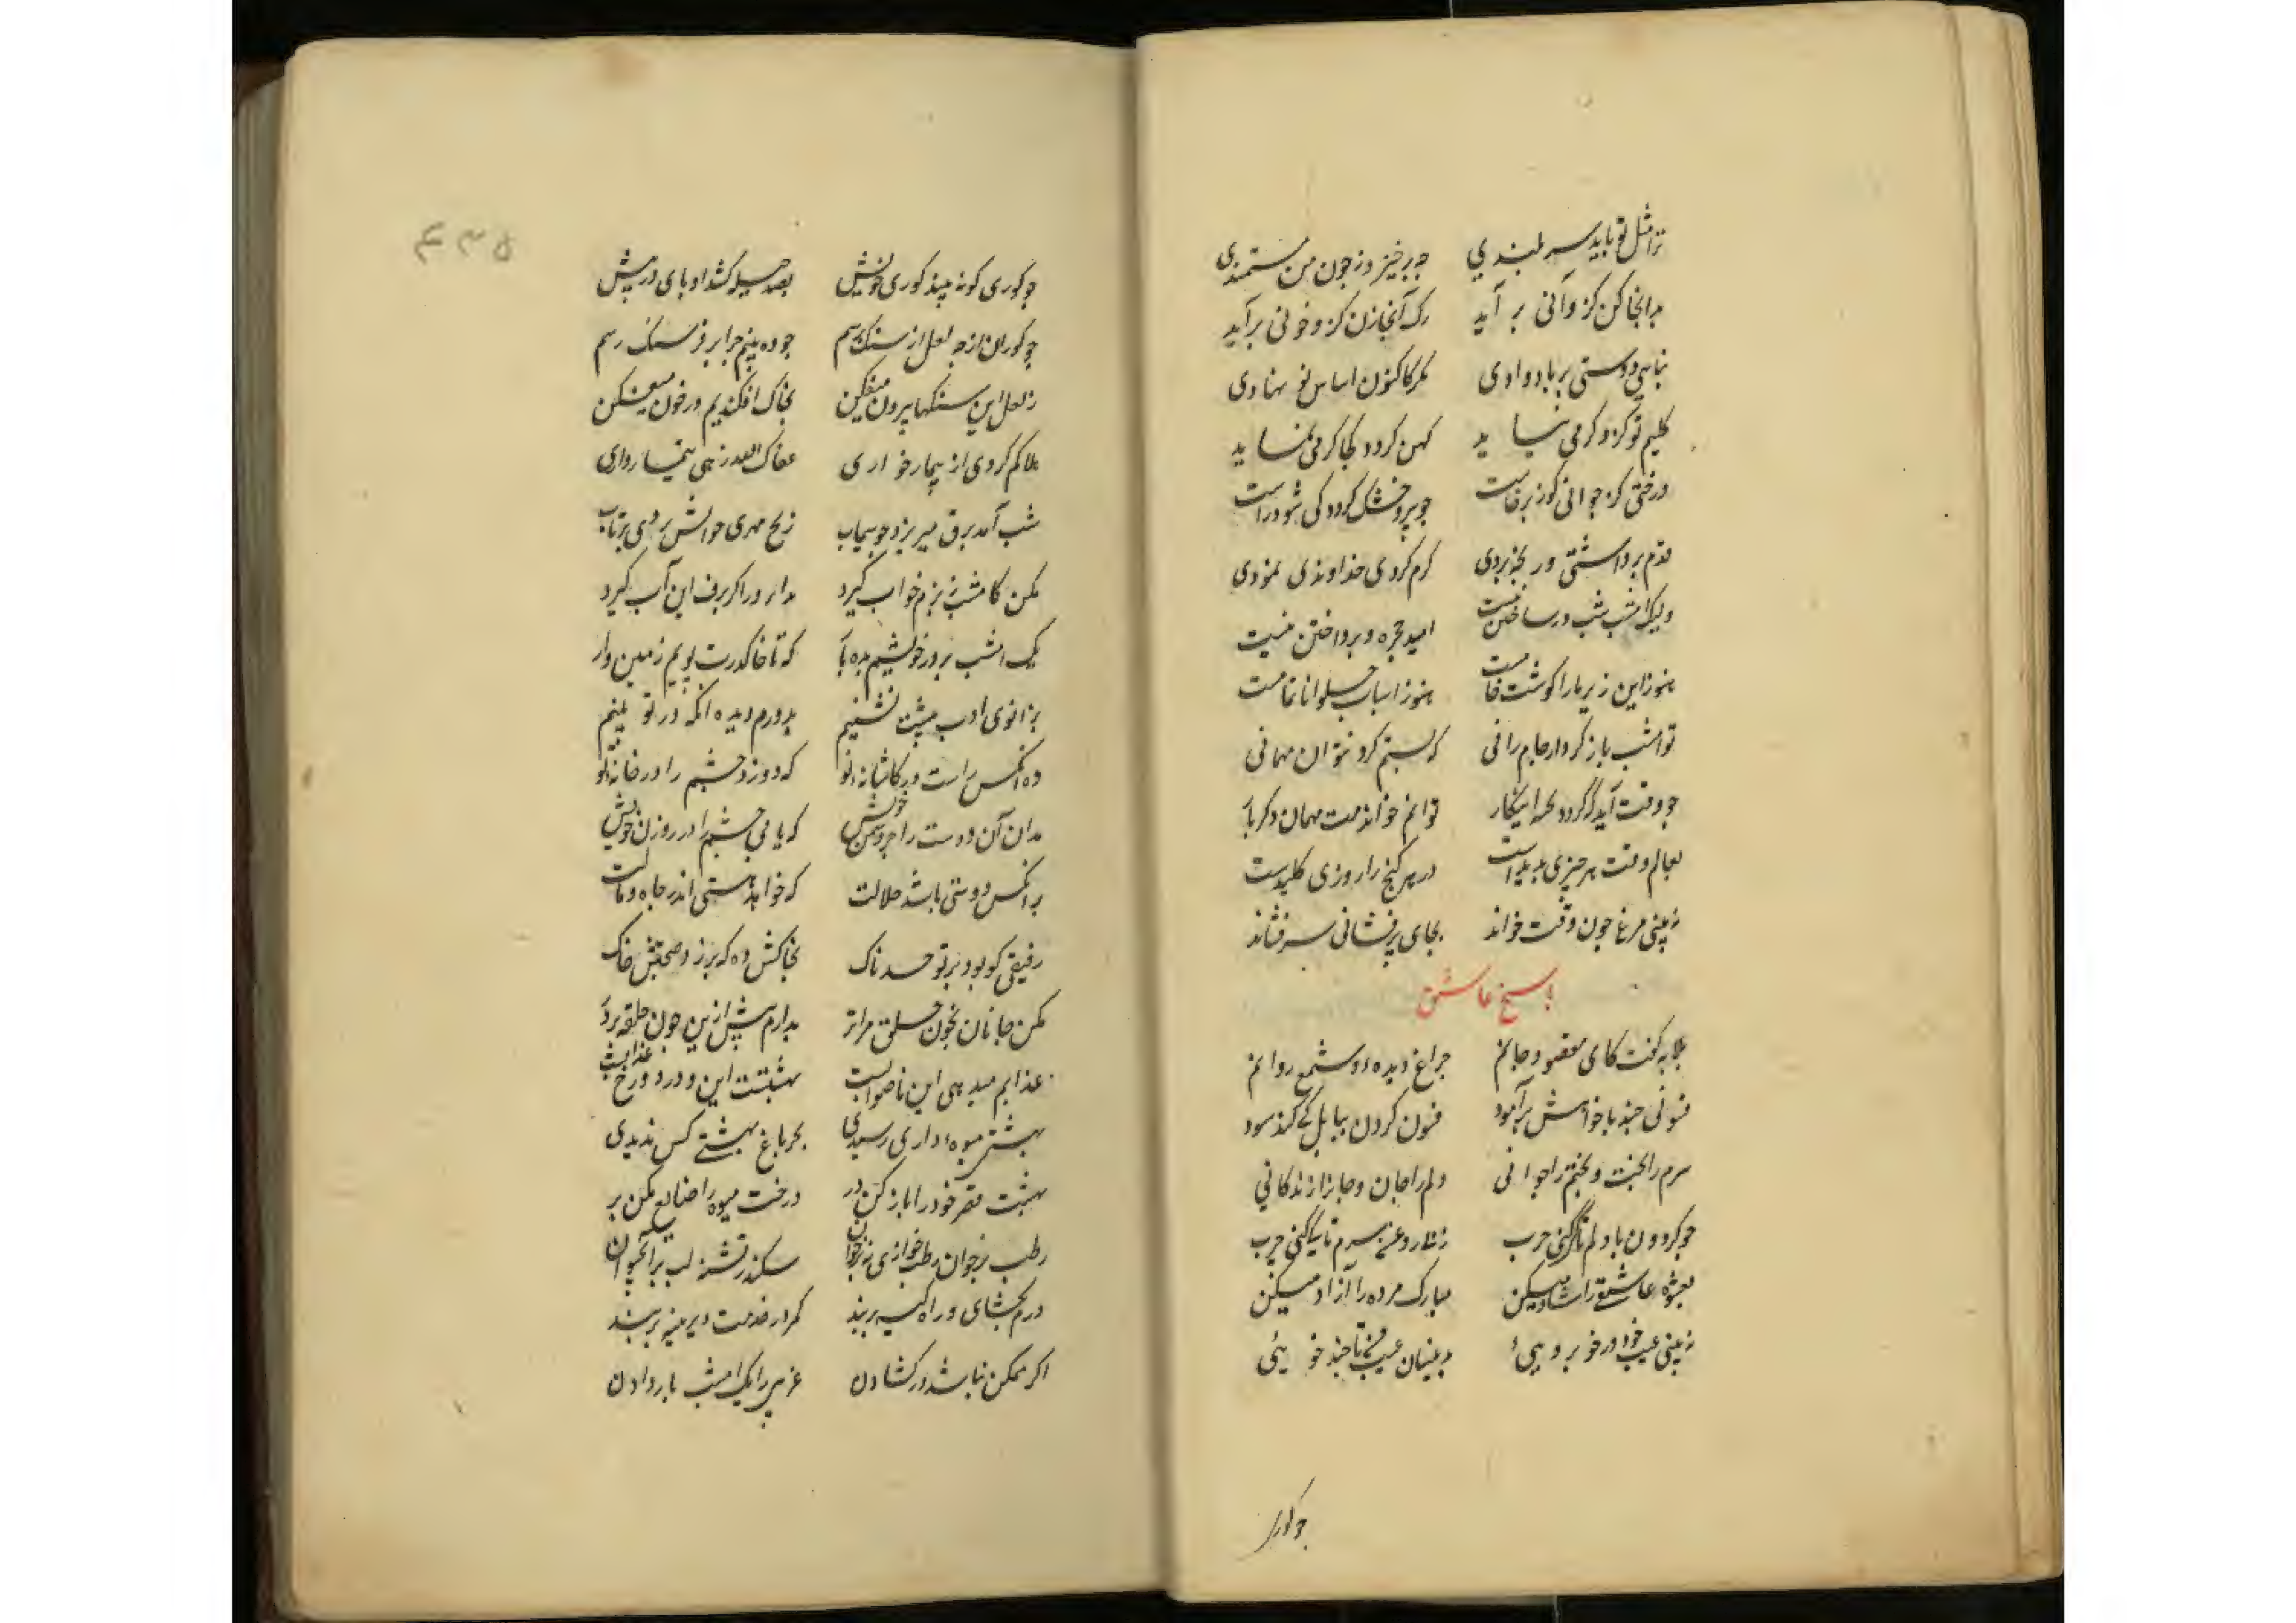 ترا مثل تو باید سربلندی چه برخیزد ز چون من مستمندی
بدانجا کن کزو آنی بر آید رک آنجا زن کزو خونی برآید
بنای دوستی بر باد دادی مکر کاکنون اساس نو نهادی
کلیم نو کزو کرمی نیاید کهن کردد کجا کرمی نماید
درختی کز جوانی کوز برخاست چو پیر و خشک کردد کی شود راست
قدم برداشتی و رنجه بودی کرم کردی خداوندی نمودی
ولیک امشب شب در ساختن نیست امید حجره وپرداختن نیست
هنوز این زیربا را کوشت خامست هنوز اسباب حلوا ناتمامست
تو امشب باز کرد از حام رانی که نستم کرد نتوان مهمانی
چو وقت آید که کردد پخته این کار توانم خواندنت مهمان دکر بار
بعالم وقت هر چیزی پدید است در هر کنج را روزی کلیدست
نه بینی مرغ چون بی وقت خواند بجای پرفشانی سر فشاند
پاسخ عاشق
بلابه کفت کای مقصود جانم چراغ دیده و شمع روانم
فسونی چند با خواهش برآمود فسون کردن ببابل کی کند سود
سرم را بخت و بختم را جوانی دلم را جان و جانرا زندکانی
چو کردون با دلم تا کی کنی حرب بنظاره سرم تا کی کنی چرب
بعشوه عاشقی را شاد میکن مبارک مرده را آزاد میکن
نه بینی عیب خود در خوبرویی بدینسان عیب من تا چند خویی
چو کوری
۵۳۶
چو کوری کو نه بیند کوری خویش بصد حیله کشد او پای در پیش
چو کوران ار نه لعل از سنک پرسم چو ده بینم چرا بر فرسنک رسم
ز لعل این سنکها بیرون میفکن بخاک افکندیم در خون میفکن
هلاکم کردی از تیمار خواری عفاک الله زهی تیمارداری
شب آمد برق میریزد چو سیماب ز یخ مهری چو آتش روی برتاب
مکن کامشب ز برفم خواب کیرد بدار در را که برف این آب کیرد
یک امشب بر در خویشم بده بار که تا خاک درت بوسم زمین وار
بزانوی ادب پیشت نشینم بدوزم دیده انکه در تو بینم
ره آنکس راست در کاشانه تو که دوزد چشم را در خانه تو
مدان آن دوست را جز دشمن خویش که یابی چشم او در روزن خویش
بر آنکس دوستی باشد حلالت که خواهد هستی اندر جاه و مالت
رفیقی کو بود بر تو حسدناک بخاکش ده که برزد صحبتش خاک
مکن جانان بخون حلق مرا تر مدارم بیش ازین چون حلقه بر در
عذابم میدهی این ناصوابست بهشتست این و در دوزخ عذابست
بهشتی میوه داری رسیدی بجز باغ بهشتی کس ندیدی
بهشت قصر خود را باز کن در درخت میوه را ضایع مکن بر
رطب بر خوان رطب خواری نه بر خوان سکندر تشنه لب بر آب حیوان
درم بکشای و راه کینه بربند کمر در خدمت دیرینه بربند
اکر ممکن نباشد در کشادن غریبی را یک امشب بار دادن